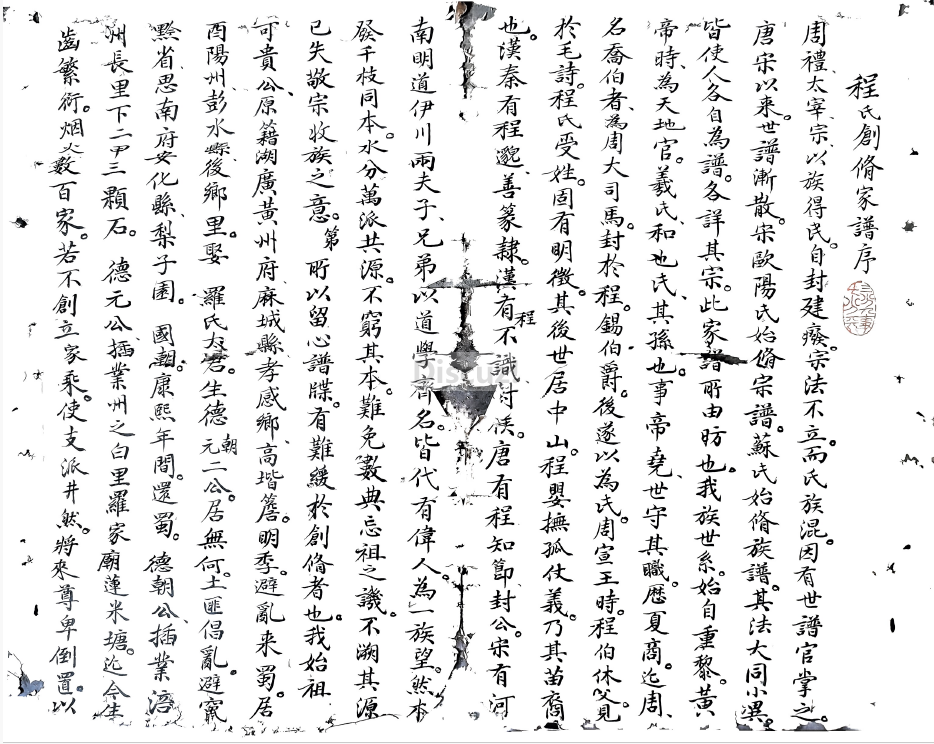 程氏創脩家譜序
周禮太宰宗以族得民。自封建癈。宗法不立。而氏族混。因有世譜官掌之。
唐宋以來。世譜漸散。宋歐陽氏始脩宗譜。蘇氏始脩族譜。其法大同小異。
皆使人各自為譜。各詳其宗。此家譜所由昉也。我族世系。始自重黎。黃
帝時、為天地官。羲氏、和也氏、其孫也。事帝堯、世守其職。歷夏商。迄周、
名喬伯者、為周大司馬。封於程。錫伯爵。後遂以為氏。周宣王時。程伯休父見
於毛詩。程氏受姓。固有明徵。其後世居中山。程嬰撫孤仗義。乃其苗裔
也。漢秦有程邈、善篆隸。漢有程不識封侯。唐有程知節封公。宋有河
南明道伊川兩夫子、兄弟以道學齊名。皆代有偉人。為一族望。然本
發千枝同本。水分萬派共源。不窮其本。難免數典忘祖之譏。不溯其源
已失敬宗收族之意。第所以留心譜牒。有難緩於創脩者也。我始祖
可貴公、原籍湖廣黃州府、麻城縣孝感鄉、高堦簷。明季。避亂來蜀。居
酉陽州彭水縣後鄉里。娶 羅氏太君。生德朝元二公。居無何。土匪倡亂。避竄
黔省思南府安化縣、梨子園。 國朝。康熙年間。還蜀。德朝公、插業涪
洲長里下二甲三顆石。 德元公插業州之白里羅家廟蓮米塘。迄今生
齒繁衍。烟火數百家。若不創立家乘。使支派井然。將來尊卑倒置。以